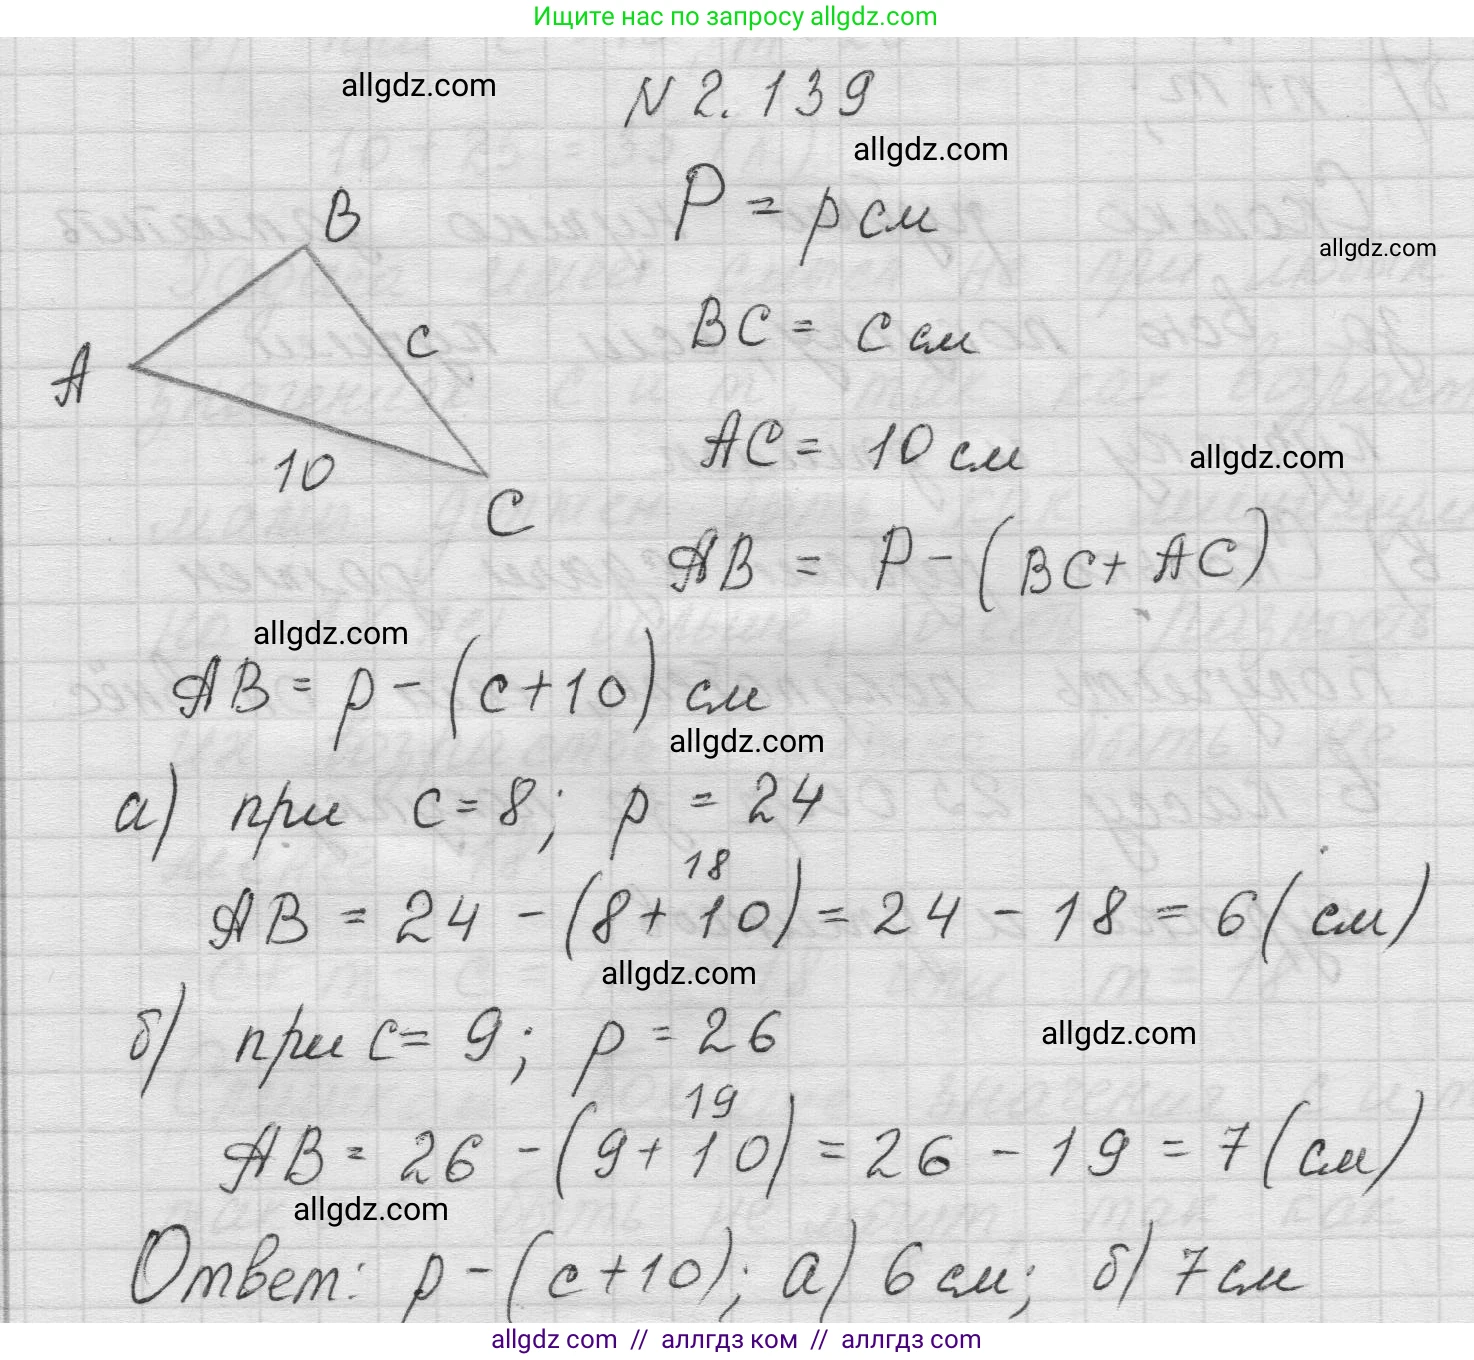 Ищите нас по запросу allgdz.com
allgdz.com
N 2.139
allgdz.com
P = p см
B
allgdz.com
BC = c см
c
A
AC = 10 см
allgdz.com
10
C
AB = P - (BC + AC)
allgdz.com
AB = p - (c + 10) см
allgdz.com
а) при c = 8; p = 24
18
AB = 24 - (8 + 10) = 24 - 18 = 6 (см)
allgdz.com
б) при c = 9; p = 26
allgdz.com
19
AB = 26 - (9 + 10) = 26 - 19 = 7 (см)
allgdz.com
Ответ: p - (c + 10); а) 6 см; б) 7 см
allgdz com // аллгдз ком // аллгдз com